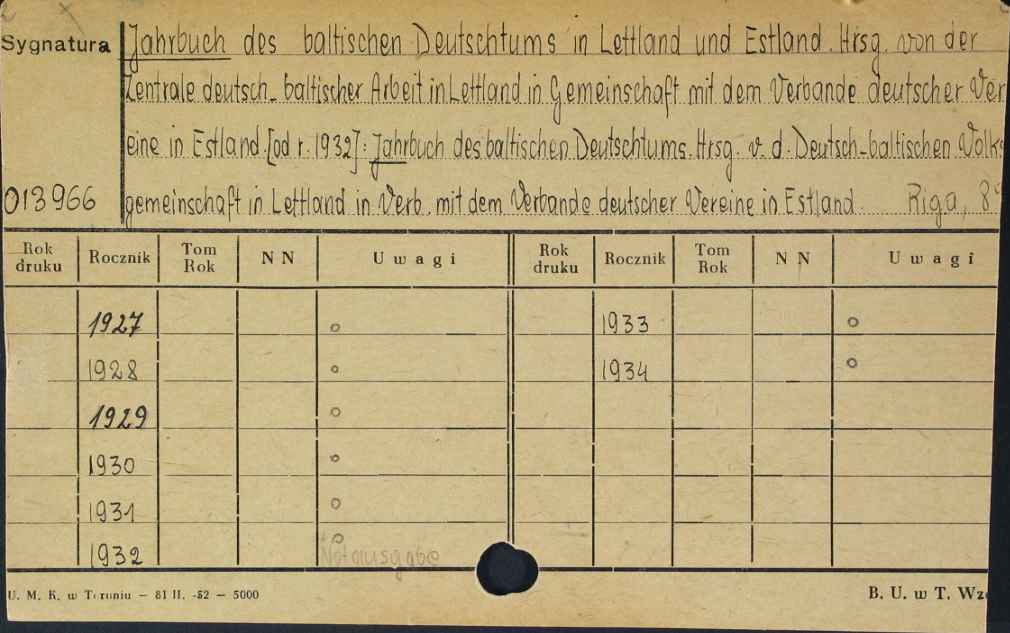 Sygnatura
Jahrbuch des baltischen Deutschtums in Lettland und Estland. Hrsg. von der
Zentrale deutsch-baltischer Arbeit in Lettland in Gemeinschaft mit dem Verbande deutscher Ver
eine in Estland. [od r. 1932]: Jahrbuch des baltischen Deutschtums. Hrsg. v. d. Deutsch-baltischen Volks
013966 gemeinschaft in Lettland in Verb. mit dem Verbande deutscher Vereine in Estland. Riga, 8°
Rok druku Rocznik Tom Rok N N Uwagi Rok druku Rocznik Tom Rok N N Uwagi
1927 o 1933 o
1928 o 1934 o
1929 o
1930 o
1931 o
1932 o Notausgabe
U. M. K. w Toruniu — 81 II. -52 — 5000 B. U. w T.